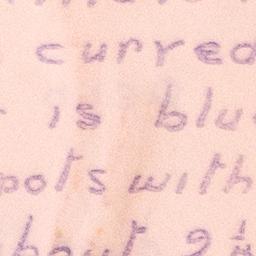 curred
is blu
pots with
bout 2 1/2